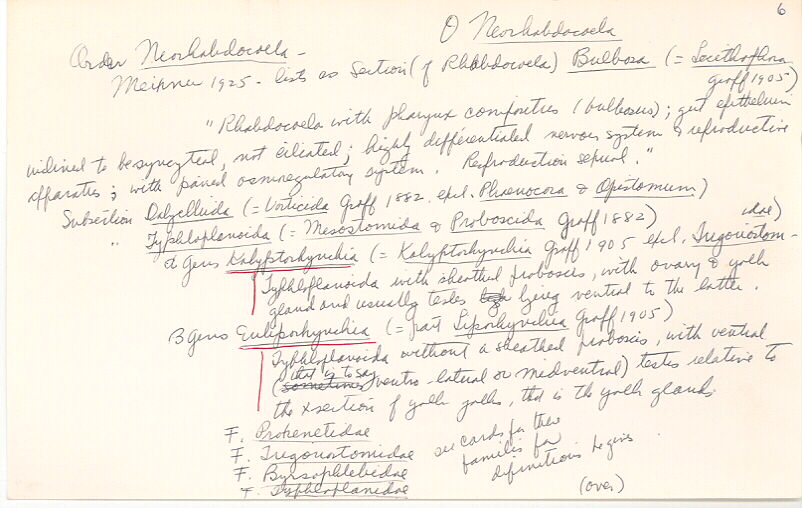 6
O Neorhabdocoela
Order Neorhabdocoela -
Meixner 1925 - lists as Section (of Rhabdocoela) Bulbosa (= Lecithophora
Graff 1905)
"Rhabdocoela with pharynx compositus (bulbosus); gut epithelium
inclined to be syncytial, not ciliated; highly differentiated nervous system & reproductive
apparatus; with paired osmoregulatory system. Reproduction sexual."
Subsection Dalyelliida (= Vorticida Graff 1882 excl. Phaenocora & Opistomum)
" Typhloplanoida (= Mesostomida & Proboscida Graff 1882)
α Gens Kalyptorhynchia (= Kalyptorhynchia Graff 1905 excl. Trigonostom-
idae)
Typhloplanoida with sheathed proboscis, with ovary & yolk
gland and usually testes lying ventral to the latter.
B Gens Euliporhynchia (= part Liporhynchia Graff 1905)
Typhloplanoida without a sheathed proboscis, with ventral
that is to say
(sometimes ventro-lateral or medventral) testes relative to
the x section of yolk yolks, that is the yolk glands
F. Proxenetidae
F. Trigonostomidae see cards for these
F. Byrsophlebidae families for
F. Typhloplanidae definitions he gives
(over)